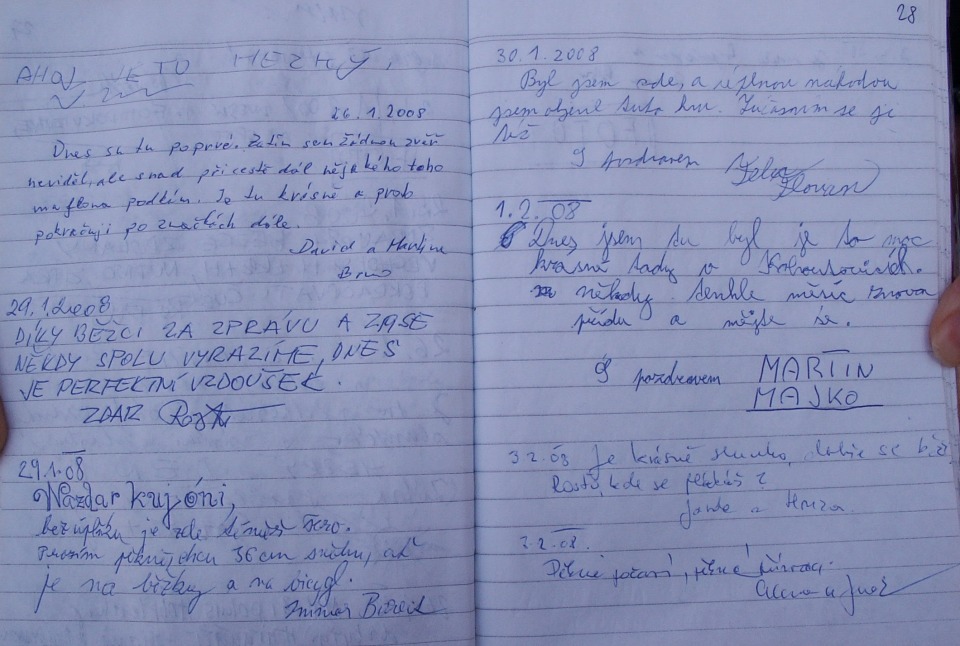 AHOJ JE TO HEZKÝ,
26.1.2008
Dnes sem tu poprvé. Zatím sem žádnou zvěř
neviděl, ale snad při cestě dál nějakého toho
muflona potkám. Je tu krásně a prob
pokračuji po značkách dále.
David a Martina
Brno
29.1.2008
DÍKY BĚŽCI ZA ZPRÁVU A ZASE
NĚKDY SPOLU VYRAZÍME, DNES
JE PERFEKTNÍ VZDOUŠEK.
ZDAR
29.1.08
Nazdar kujóni,
bez úplňku je zde téměř
Prosím pěkně, chcu 36cm sněhu, ať
je na běžky a na bicygl.
28
30.1.2008
Byl jsem zde, a úplnou náhodou
jsem objevil tuto hru. Zúčasním se jí
též
S pozdravem
1.2.08
Dnes jsem tu byl je to moc
krásné tady v Kohoutovicích.
někdy tenhle měsíc znova
přídu a mějte se.
S pozdravem MARTIN
MAJKO
3.2.08 Je krásné slunko, dobře se běží.
Rosťo, kde se flákáš?
a
3.2.08.
Pěkné počasí, pěkné
a